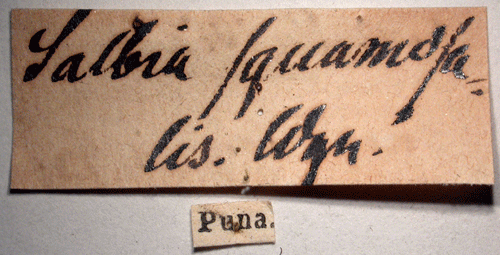 Salbia squamosa-
lis. Wgn.
Puna.